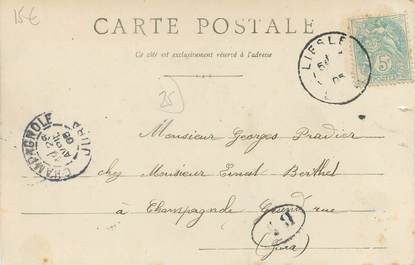 15€
CARTE POSTALE
Ce côté est exclusivement réservé à l'adresse
LIESLE
05
5c
25
CHAMPAGNOLE
JURA
05
Monsieur Georges Pradier
chez Monsieur Ernest Berthet
à Champagnole Grand rue
(Jura)
B